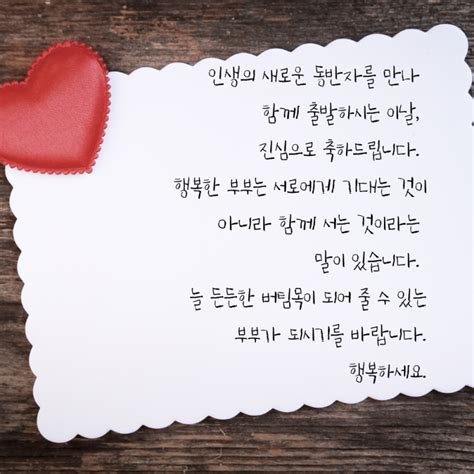 인생의 새로운 동반자를 만나
함께 출발하시는 이날,
진심으로 축하드립니다.
행복한 부부는 서로에게 기대는 것이
아니라 함께 서는 것이라는
말이 있습니다.
늘 든든한 버팀목이 되어 줄 수 있는
부부가 되시기를 바랍니다.
행복하세요.